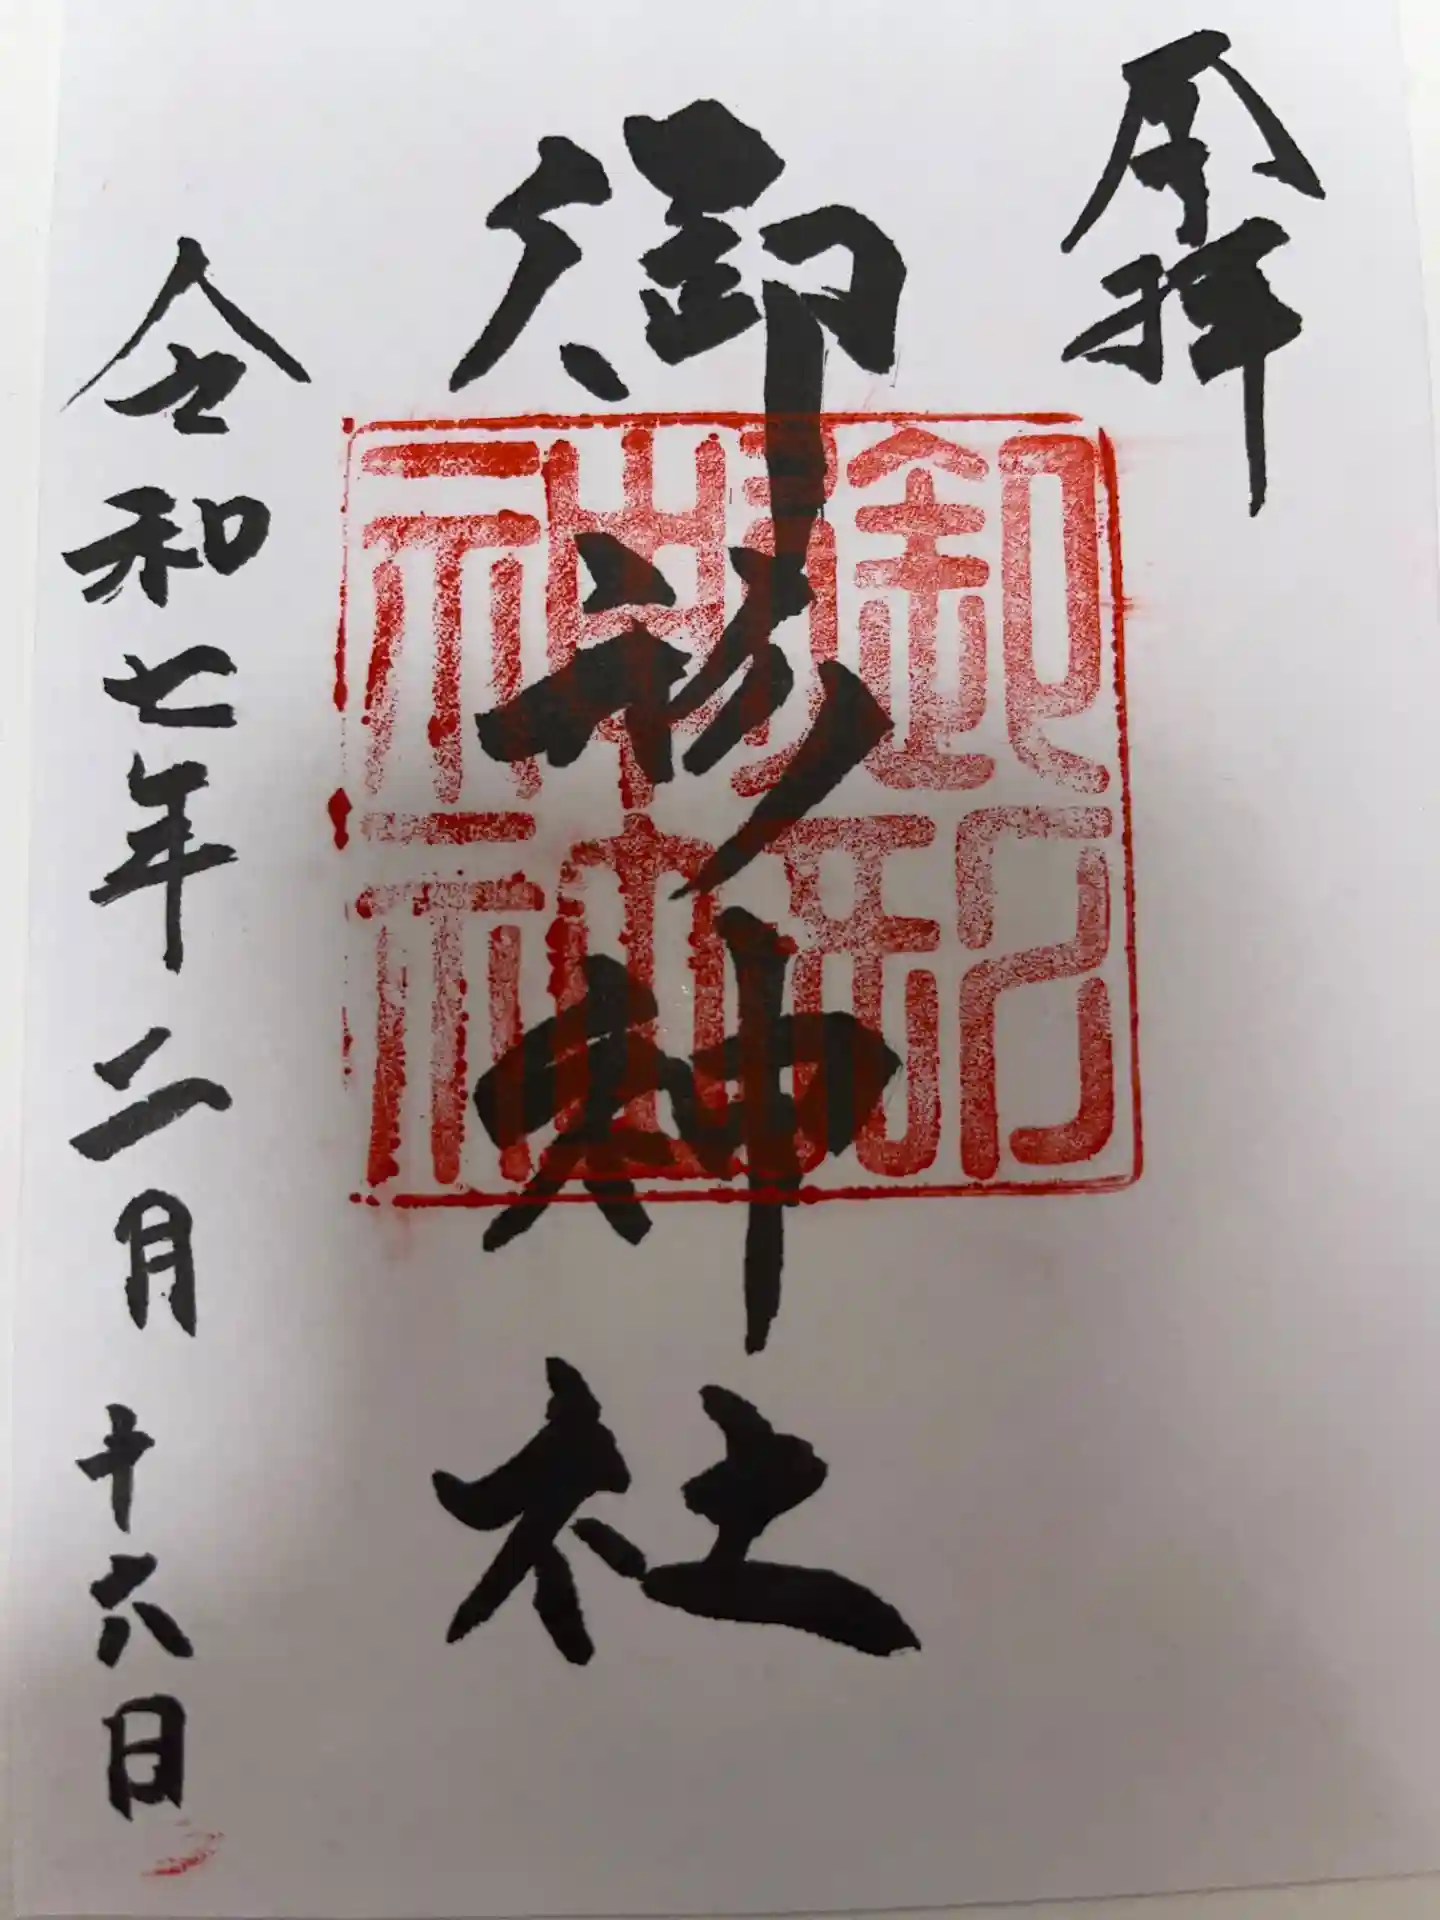 奉拝
御形神社
御形神社
令和七年二月十六日